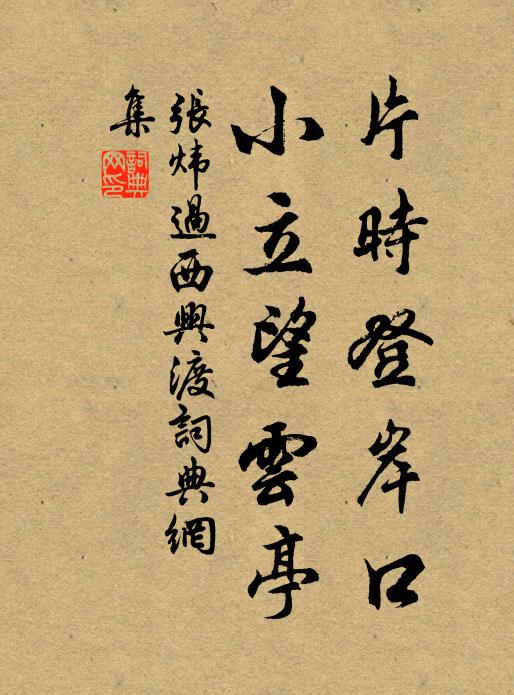 片時登岸口
小立望雲亭
張煒過西興渡詞典網
集
詞典
网印